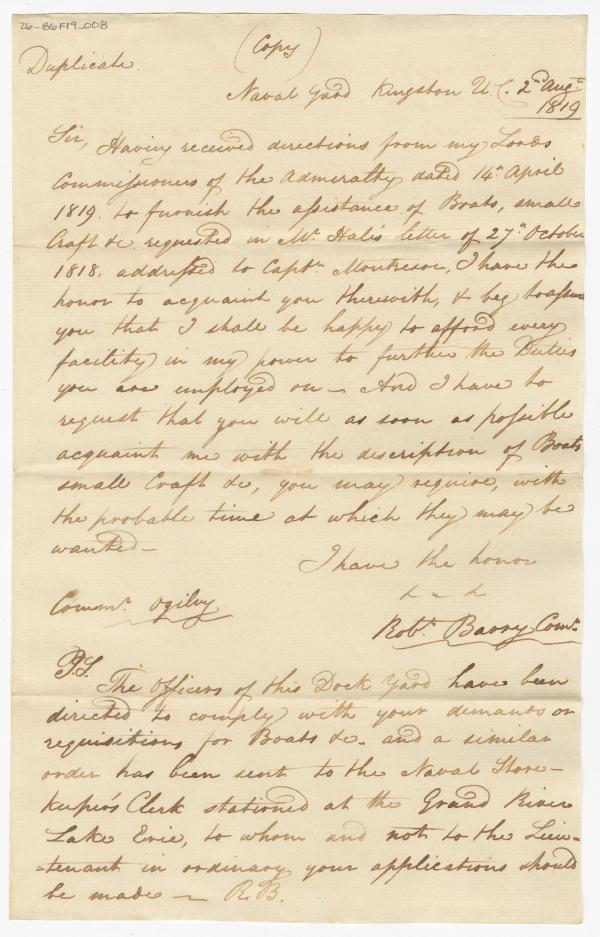 26-B6F19_008
(Copy)
Duplicate.
Naval Yard Kingston U.C. 2nd Augt.
1819
Sir, Having received directions from my Lords
Commissioners of the Admiralty dated 14th April
1819. to furnish the assistance of Boats, small
Craft &c. requested in Mr. Hale's letter of 27th October
1818. addressed to Captn. Montresor, I have the
honor to acquaint you therewith, & beg to assure
you that I shall be happy to afford every
facility in my power to further the Duties
you are employed on – And I have to
request that you will as soon as possible
acquaint me with the description of Boats
small Craft &c, you may require, with
the probable time at which they may be
wanted –
I have the honor
Commr. Ogilvy
Robt. Barry Comr.
P.S.
The Officers of this Dock Yard have been
directed to comply with your demands or
requisitions for Boats &c. and a similar
order has been sent to the Naval Store-
keeper's Clerk stationed at the Grand River
Lake Erie, to whom and not to the Lieu-
=tenant in ordinary your applications should
be made – R.B.